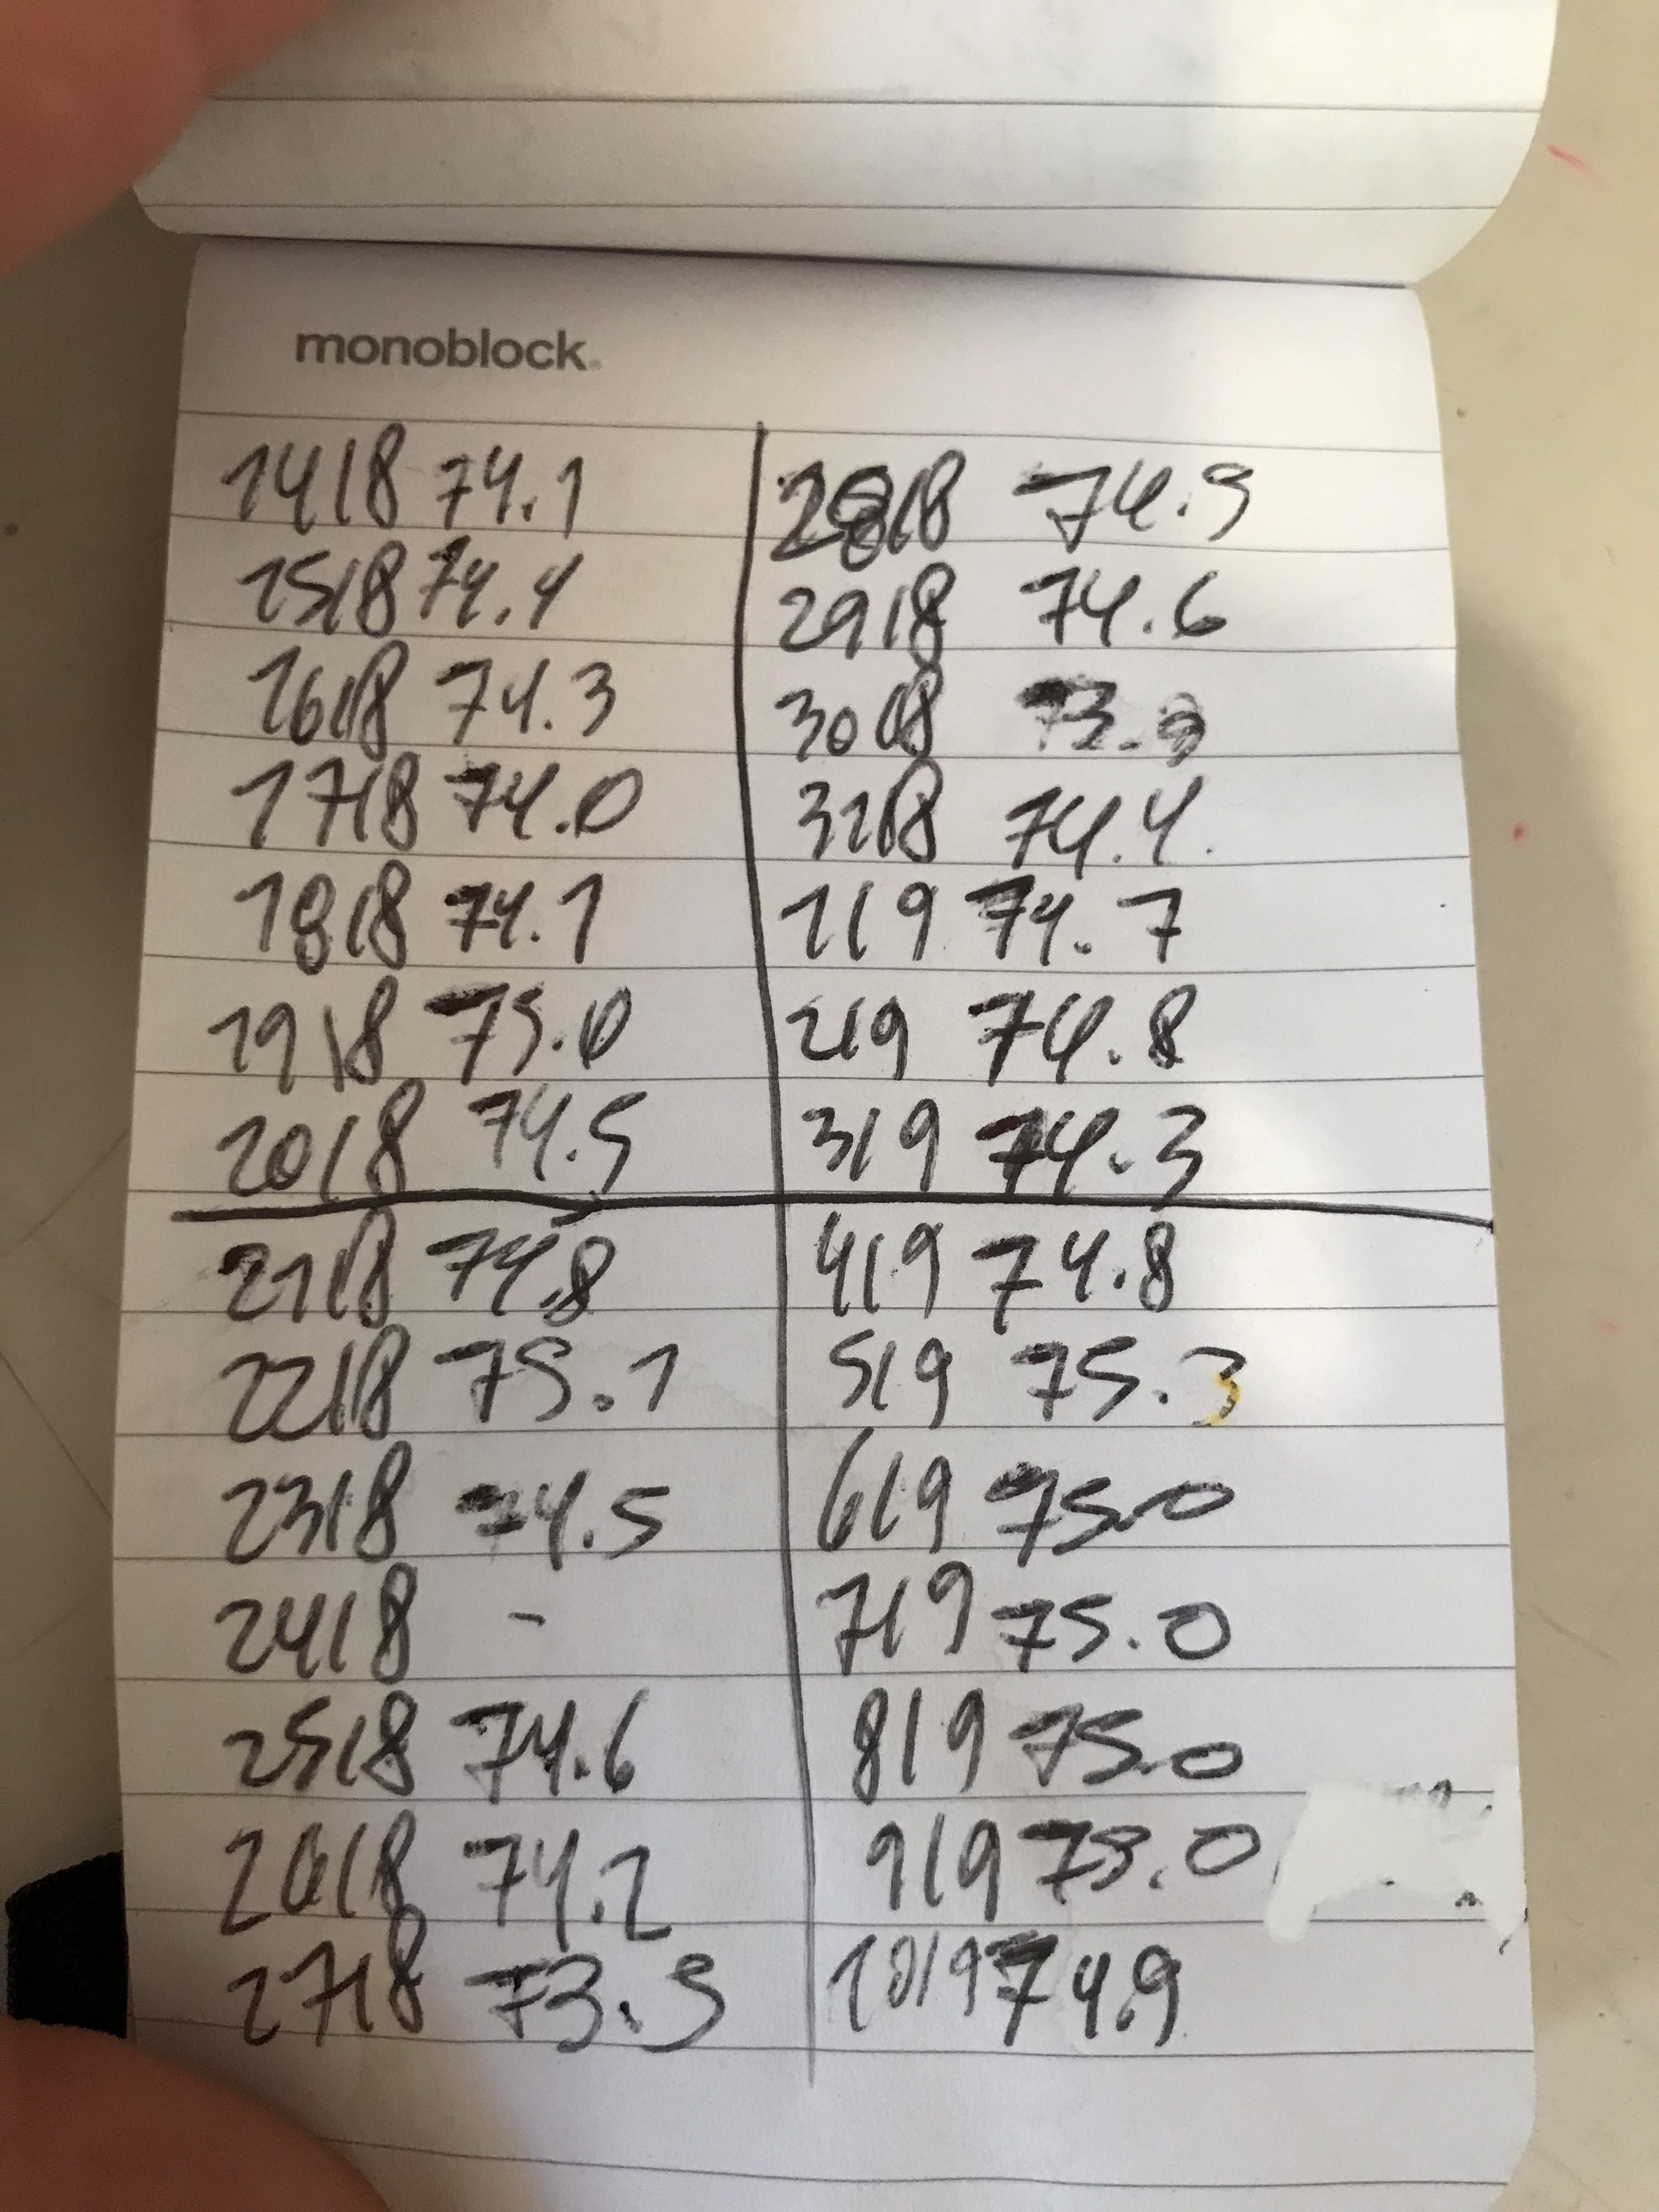 monoblock.
14/8 74.1
15/8 74.4
16/8 74.3
17/8 74.0
18/8 74.1
19/8 75.0
20/8 74.5
21/8 74.8
22/8 75.1
23/8 74.5
24/8 -
25/8 74.6
26/8 74.2
27/8 73.9
28/8 74.9
29/8 74.6
30/8
31/8 74.4.
1/9 74.7
2/9 74.8
3/9 74.3
4/9 74.8
5/9 75.3
6/9 75.0
7/9 75.0
8/9 75.0
9/9 75.0
10/9 74.9